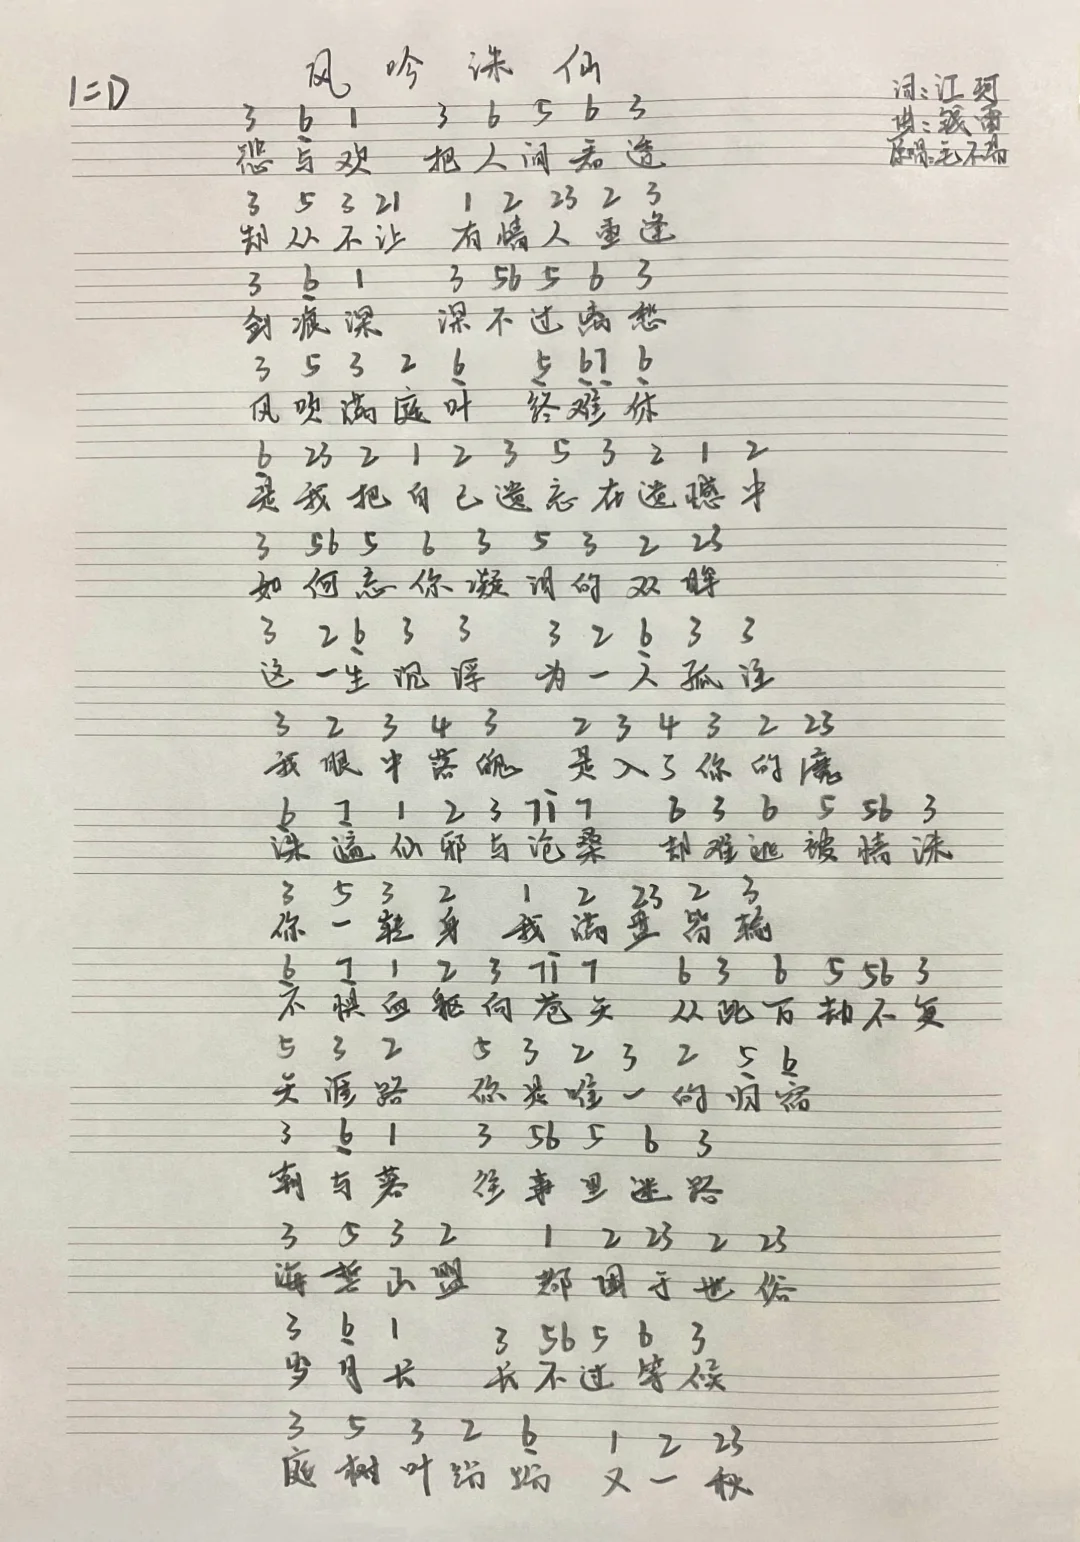 风吟诛仙
1=D
词:江珂
曲:钱雷
原唱:毛不易
3 6̣ 1 3 6 5 6 3
愁与欢 把人间煮透
3 5 3 21 1 2 23 2 3
却从不让 有情人重逢
3 6̣ 1 3 56 5 6 3
剑痕深 深不过离愁
3 5 3 2 6̣ 5̣ 6̣7̣ 6̣
风吹满庭叶 终难休
6̣ 23 2 1 2 3 5 3 2 1 2
是我把自己遗忘在遗憾中
3 56 5 6 3 5 3 2 23
如何忘你凝泪的双眸
3 2 6̣ 3 3 3 2 6̣ 3 3
这一生沉浮 为一人孤注
3 2 3 4 3 2 3 4 3 2 23
我眼中落魄 是入了你的魔
6̣ 7̣ 1 2 3 71̇ 7 6 3 6 5 56 3
诛遍仙邪与沧桑 却难逃被情诛
3 5 3 2 1 2 23 2 3
你一转身 我满盘皆输
6̣ 7̣ 1 2 3 71̇ 7 6 3 6 5 56 3
不惧血躯向苍天 从此万劫不复
5 3 2 5 3 2 3 2 5̣ 6̣
天涯路 你是唯一的归宿
3 6̣ 1 3 56 5 6 3
朝与暮 往事里迷路
3 5 3 2 1 2 23 2 23
海誓山盟 都困于世俗
3 6̣ 1 3 56 5 6 3
岁月长 长不过等候
3 5 3 2 6̣ 1 2 23
庭树叶 又一秋